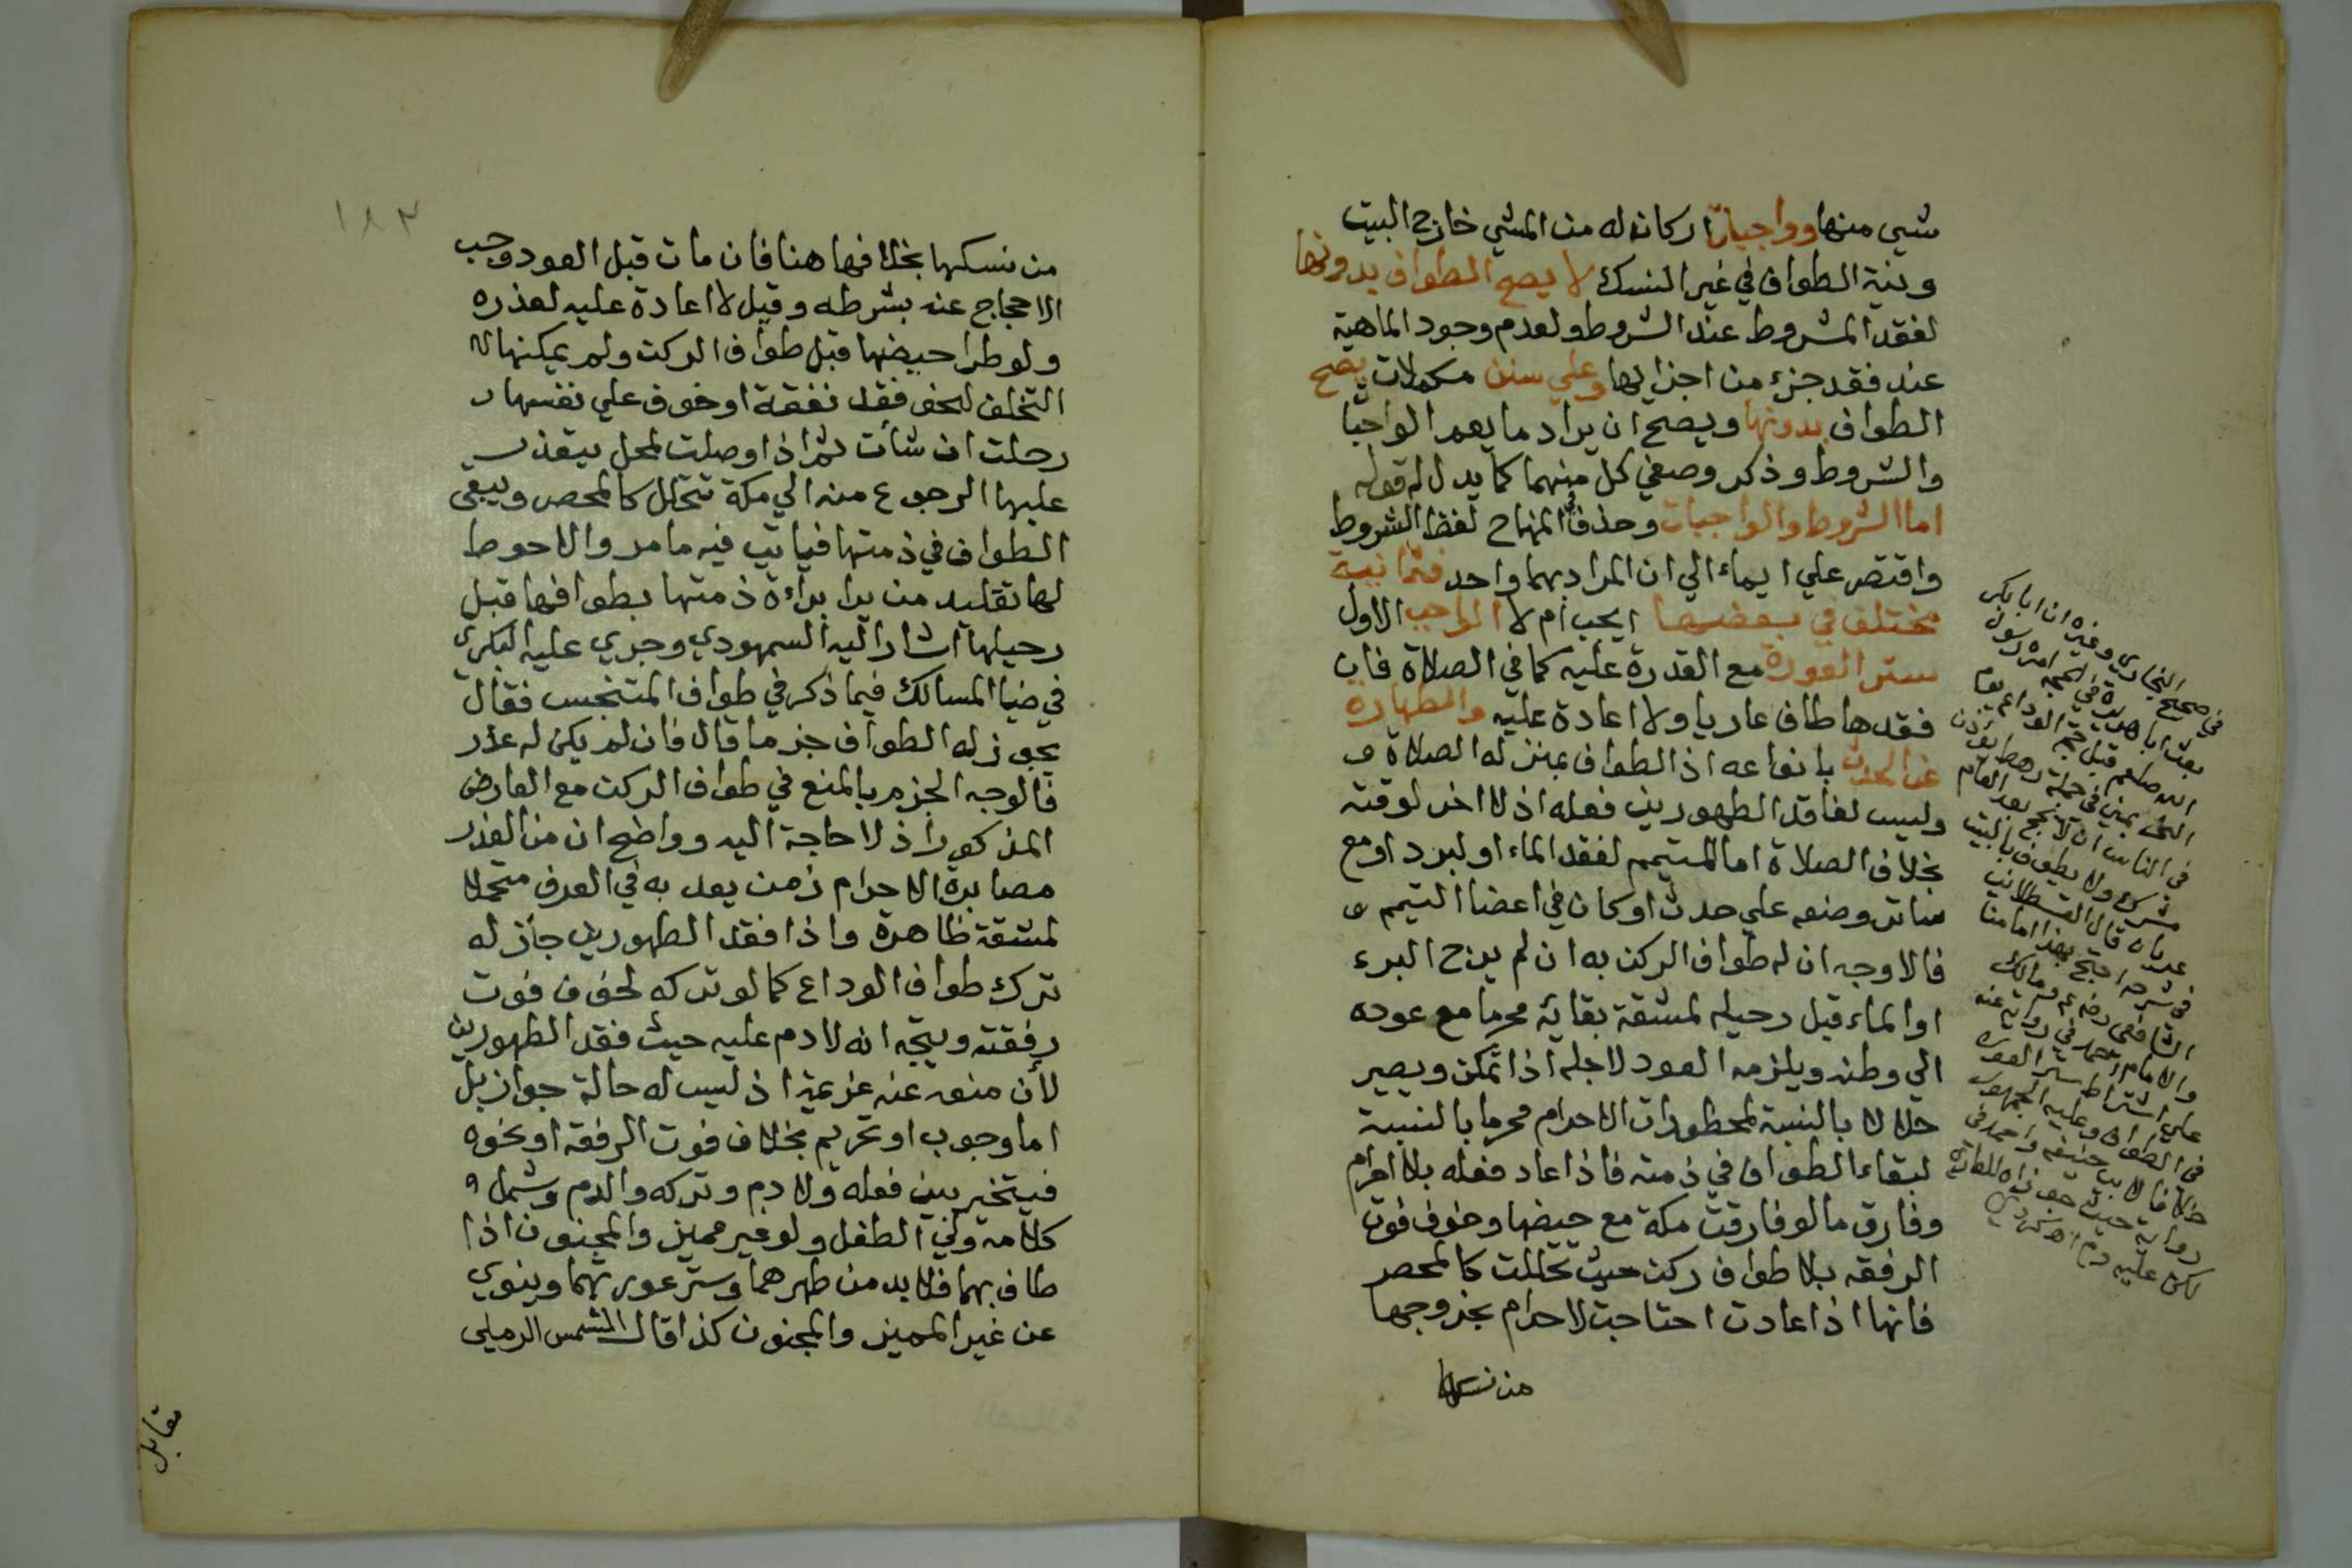 شيي منها وواجبات اركان له من المشي خارج البيت
ونية الطواف في غير النسك لا يصح الطواف بدونها
لفقد المشروط عند الشروط ولعدم وجود الماهية
عند فقد جزء من اجزايها وعلي سنن مكملات يصح
الطواف بدونها ويصح ان يراد ما يعم الواجبا
والشروط وذكر وصفي كل منهما كما يدل له قوله
اما الشروط والواجبات وحذف المنهاج لفظ الشروط
واقتصر علي ايماء الي ان المراد بهما واحد فثمانية
مختلف في بعضها ايجب ام لا الواجب الاول
ستر العورة مع القدرة عليه كما في الصلاة فان
فقدها طاف عاريا ولا اعادة عليه والطهارة
عن الحدث بانواعه اذ الطواف بمنزلة الصلاة و
وليس لفاقد الطهورين فعله اذ لا اخر لوقته
بخلاف الصلاة اما المتيمم لفقد الماء او لبرد او مع
ساتر وضعه علي حدث او كان في اعضا التيمم و
فالاوجه ان له طواف الركن به ان لم يرج البرء
او الماء قبل رحيله لمشقة بقايه محرما مع عوده
الي وطنه ويلزمه العود لاجله اذا تمكن ويصير
حلالا بالنسبة لمحظورات الاحرام محرما بالنسبة
لبقاء الطواف في ذمته فاذا عاد فعله بلا احرام
وفارق ما لو فارقت مكة مع حيضها وخوف فوت
الرفقه بلا طواف ركن حيث تحللت كالمحصر
فانها اذا عادت احتاجت لاحرام بخروجها
من نسكها
في صحيح البخاري وغيره ان ابا بكر
بعث ابا هريرة في الحجه امره رسول
الله صلعم قبل حجة الوداع يوم
النحر بمنى في جملة رهط يؤذن
في الناس ان لا يحج بعد العام
مشرك ولا يطوف بالبيت
عريان قال القسطلاني
في شرحه احتج بهذا امامنا
الشافعي رضه ومالك
والامام احمد في رواية عنه
علي اشتراط ستر العورة
في الطواف وعليه الجمهور
خلافا لابي حنيفه واحمد في
رواية حيث جوزاه للعاري
لكن عليه دم
١٨٣
من نسكها بخلافها هنا فان مات قبل العود وجب
الاحجاج عنه بشرطه وقيل لا اعادة عليه لعذره
ولو طرا حيضها قبل طواف الركن ولم يمكنها
التخلف لنحو فقد نفقة او خوف علي نفسها
رحلت ان شأت ثم اذا وصلت لمحل يتعذر
عليها الرجوع منه الي مكة تتحلل كالمحصر ويبقى
الطواف في ذمتها فياتي فيه ما مر والاحوط
لها تقليد من يرا براءة ذمتها بطوافها قبل
رحيلها اشار اليه السمهودي وجري عليه البكري
في ضيا المسالك فيما ذكر في طواف المتنجس فقال
يجوز له الطواف جزما قال فان لم يكن له عذر
فالوجه الجزم بالمنع في طواف الركن مع العارض
المذكور اذ لا حاجة اليه وواضح ان من العذر
مصابرة الاحرام زمن يعد به في العرف متحملا
لمشقة ظاهرة واذا فقد الطهورين جاز له
ترك طواف الوداع كما لو تركه لخوف فوت
رفقته ويتجه انه لا دم عليه حيث فقد الطهورين
لأن منعه عنه عزيمة اذ ليس له حالة جواز بل
اما وجوب او تحريم بخلاف فوت الرفقه او نحوه
فيتخير بين فعله ولا دم وتركه والدم وشمل
كلامه ولي الطفل ولو غير مميز والمجنون اذا
طاف بهما فلا بد من طهرهما وستر عورتهما وينوي
عن غير المميز والمجنون كذا قال الشمس الرملي
مقابل